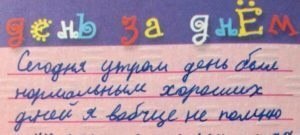 день за днём
Сегодня утром день был
нормальным хороших
дней я вабще не помню